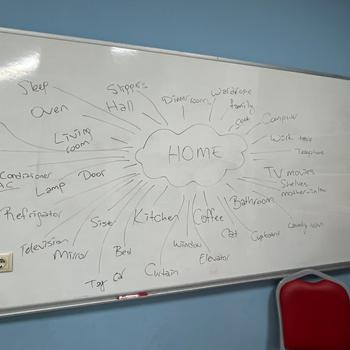 Sleep
Slippers
Hall
Dinner room
Wardrobe
family
Oven
Computer
Living
room
HOME
Work table
Telephone
TV movies
Shelves
mother-in-law
Conditioner
AC
Lamp
Door
Bathroom
Refrigirator
Sister
Kitchen
Coffee
Cat
Cupboard
Laundry room
Television
Mirror
Bed
Window
Elevator
Toy Car
Curtain